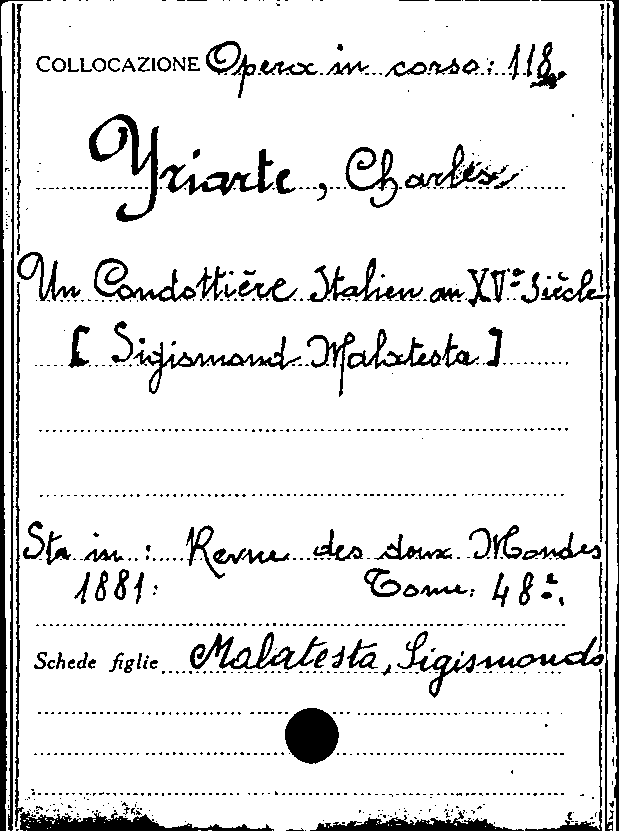 COLLOCAZIONE Opera in corso: 118
Yriarte, Charles
Un Condottière Italien au XV° Siècle
[ Sigismond Malatesta ]
Sta in: Revue des deux Mondes
1881: Tome: 48°.
Schede figlie Malatesta, Sigismondo